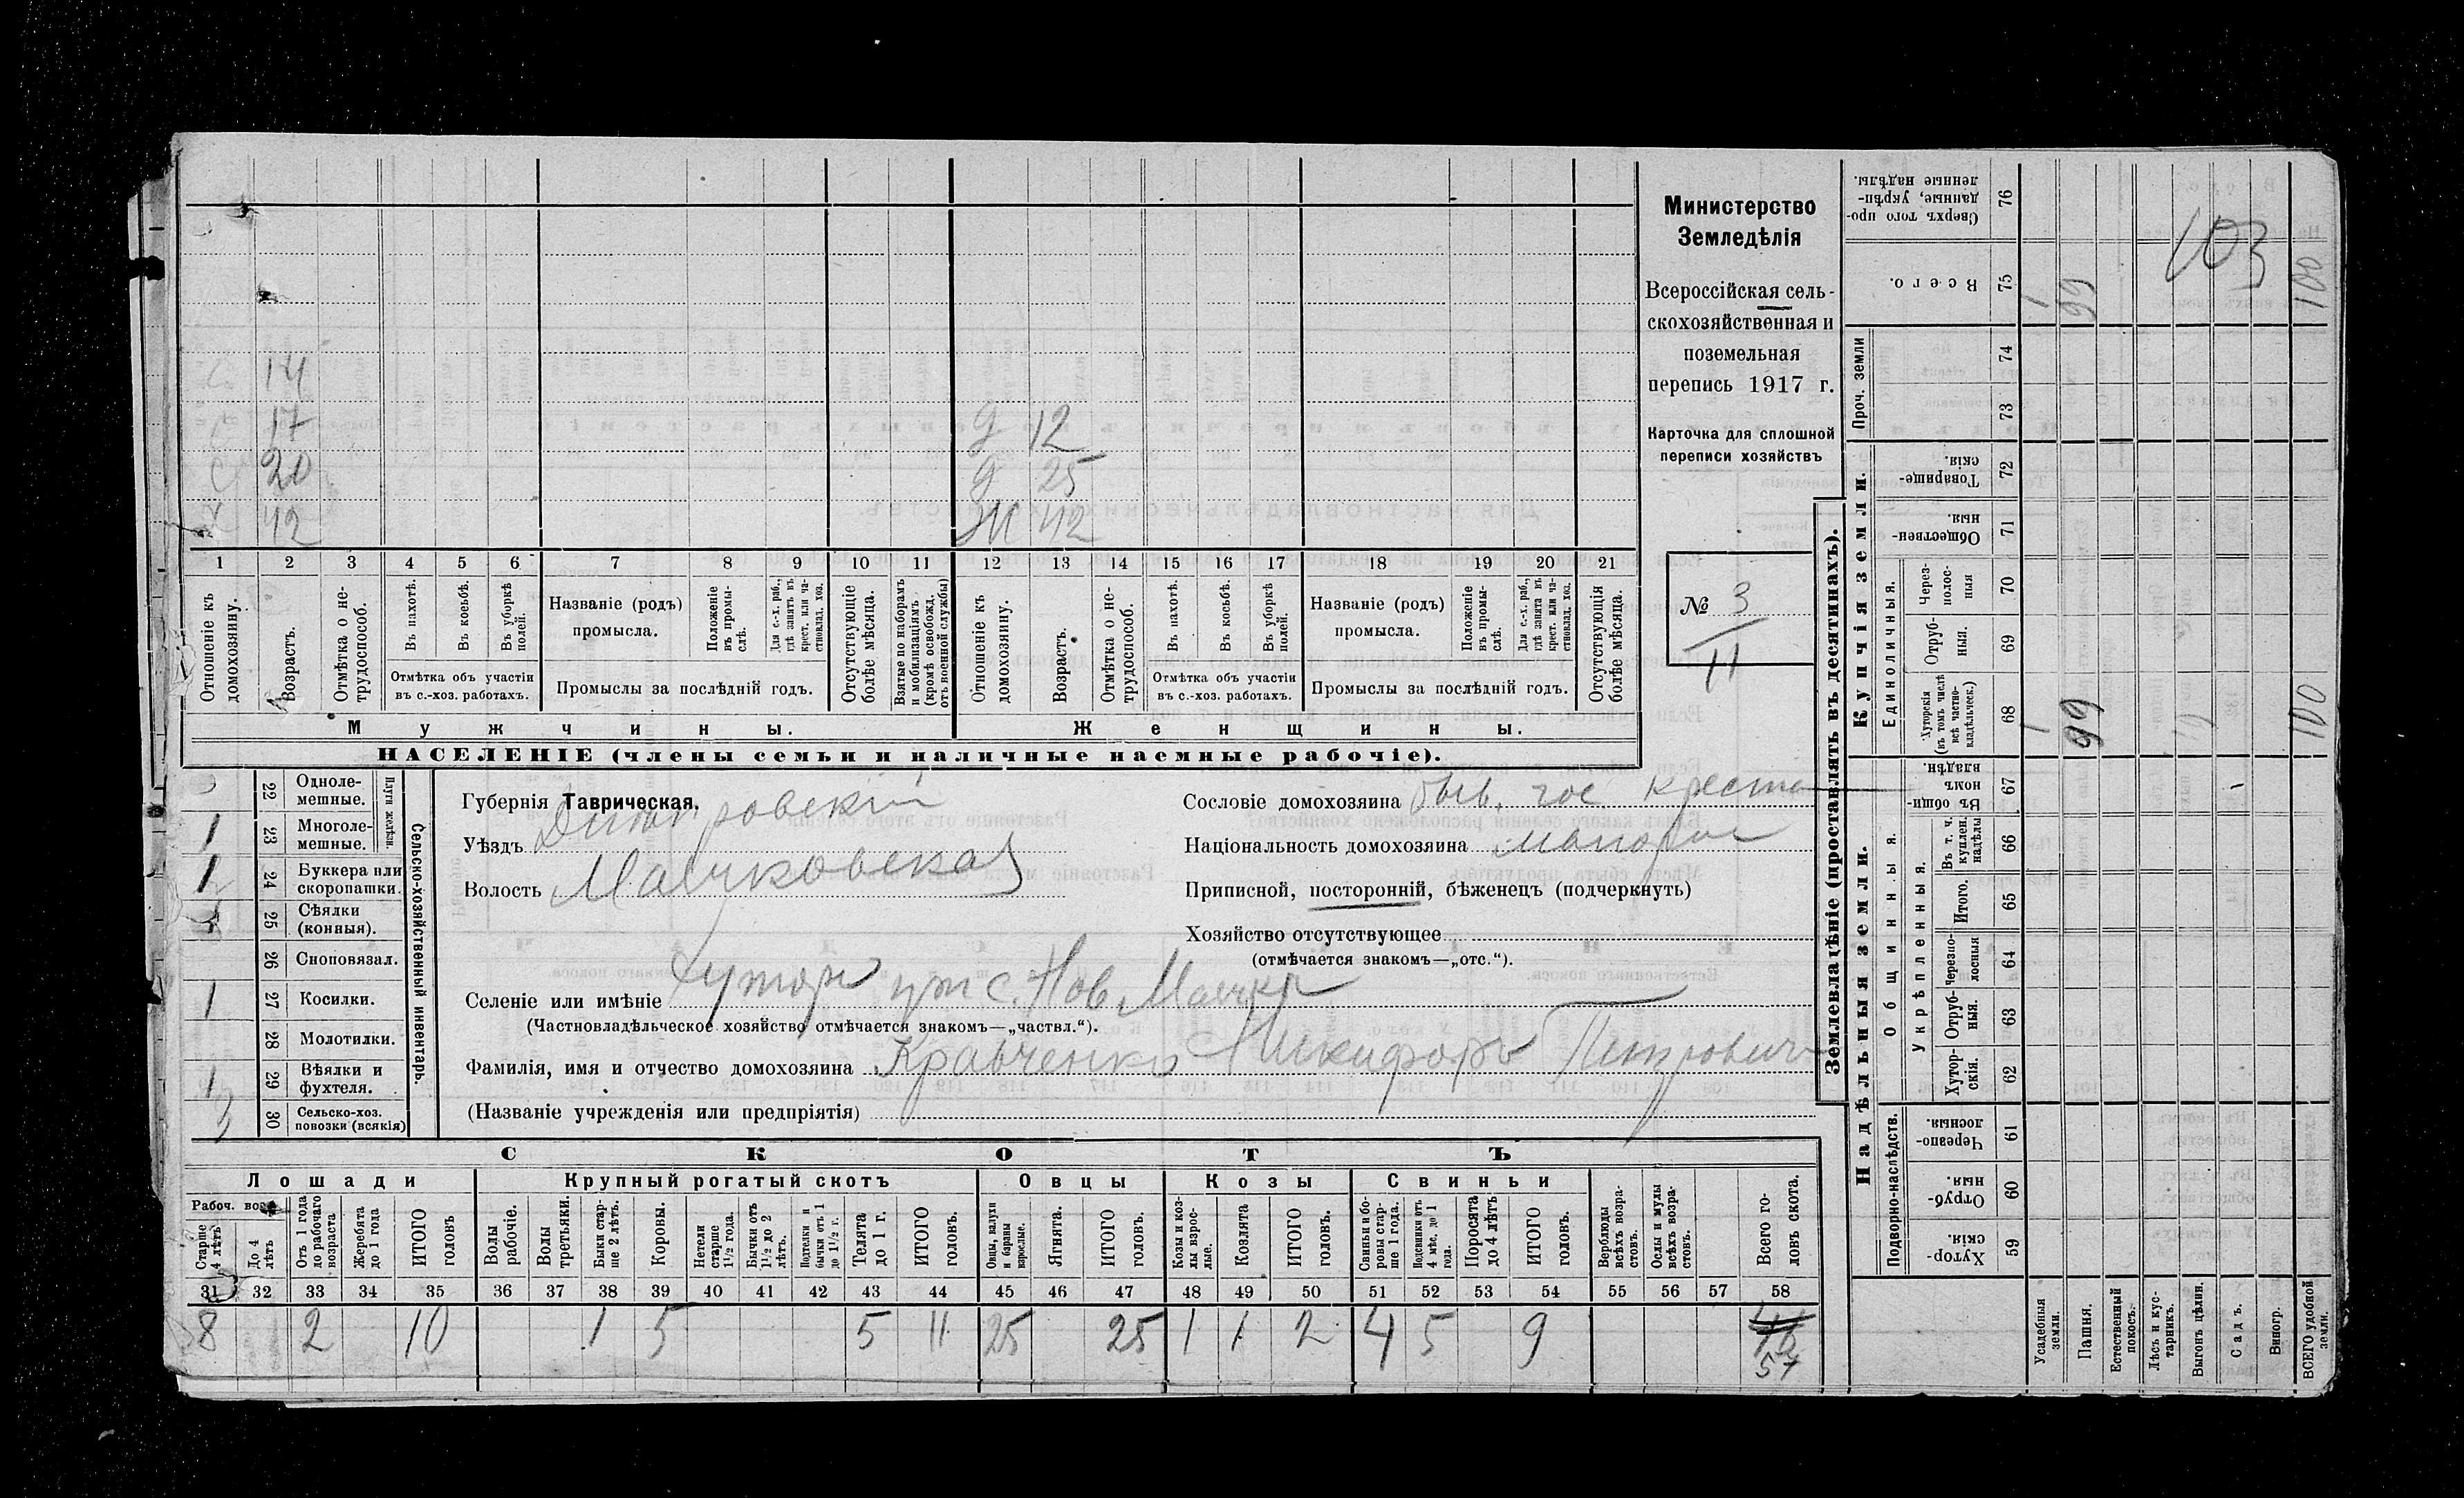 Министерство
Земледѣлія
Всероссійская сель-
скохозяйственная и
поземельная
перепись 1917 г.
Карточка для сплошной
переписи хозяйствъ
№ 3
11
С 14
С 17 д 12
С 20 д 25
Х 42 Ж 42
1 2 3 4 5 6 7 8 9 10 11 12 13 14 15 16 17 18 19 20 21
Отношеніе къ домохозяину.
Возрастъ.
Отмѣтка о не-трудоспособ.
Въ пахотѣ.
Въ косьбѣ.
Въ уборкѣ полей.
Отмѣтка объ участіи
въ с.-хоз. работахъ.
Названіе (родъ)
промысла.
Положеніе въ промы-слѣ.
Для с.-х. раб., гдѣ занятъ въ крест. или ча-стновлад. хоз.
Промыслы за послѣдній годъ.
Отсутствующіе болѣе мѣсяца.
Взятые по наборамъ и мобилизаціямъ (кромѣ освобожд. отъ военной службы)
Отношеніе къ домохозяину.
Возрастъ.
Отмѣтка о не-трудоспособ.
Въ пахотѣ.
Въ косьбѣ.
Въ уборкѣ полей.
Отмѣтка объ участіи
въ с.-хоз. работахъ.
Названіе (родъ)
промысла.
Положеніе въ промы-слѣ.
Для с.-х. раб., гдѣ занята въ крест. или ча-стновлад. хоз.
Промыслы за послѣдній годъ.
Отсутствующія болѣе мѣсяца.
Мужчины.
Женщины.
НАСЕЛЕНІЕ (члены семьи и наличные наемные рабочіе).
Сельско-хозяйственный инвентарь.
Плуги желѣзн.
22 Одноле-мешные.
1 23 Многоле-мешные.
1 24 Буккера или скоропашки.
1 25 Сѣялки (конныя).
26 Сноповязал.
1 27 Косилки.
28 Молотилки.
1 29 Вѣялки и фухтеля.
3 30 Сельско-хоз. повозки (всякія)
Губернія Таврическая.
Уѣздъ Днѣпровскій
Волость Маячковская
Сословіе домохозяина быв. гос крест
Національность домохозяина малорос
Приписной, посторонній, бѣженецъ (подчеркнуть)
Хозяйство отсутствующее
(отмѣчается знакомъ—„отс.“).
Селеніе или имѣніе Хутора при с. Нов Маячкѣ
(Частновладѣльческое хозяйство отмѣчается знакомъ—„частвл.“).
Фамилія, имя и отчество домохозяина Кравченко Никифоръ Петровичъ
(Названіе учрежденія или предпріятія)
СКОТЪ
Лошади
Крупный рогатый скотъ
Овцы
Козы
Свиньи
Рабоч. воз
Старше 4 лѣтъ
До 4 лѣтъ
Отъ 1 года до рабочаго возраста
Жеребята до 1 года
ИТОГО головъ
Волы рабочіе.
Волы третьяки.
Быки стар-ше 2 лѣтъ.
Коровы.
Нетели старше 1½ года.
Бычки отъ 1½ до 2 лѣтъ.
Подтелки и бычки отъ 1 до 1½ г.
Телята до 1 г.
ИТОГО головъ.
Овцы, валухи и бараны взрослые.
Ягнята.
ИТОГО головъ.
Козы и коз-лы взрос-лые.
Козлята
ИТОГО головъ.
Свиньи и бо-ровы стар-ше 1 года.
Подсвинки отъ 4 мѣс. до 1 года.
Поросята до 4 лѣтъ
ИТОГО головъ.
Верблюды всѣхъ возра-стовъ.
Ослы и мулы всѣхъ возра-стовъ.
Всего го-ловъ скота.
31 32 33 34 35 36 37 38 39 40 41 42 43 44 45 46 47 48 49 50 51 52 53 54 55 56 57 58
8 2 10 1 5 5 11 25 25 1 1 2 4 5 9
57
Землевладѣніе (проставлять въ десятинахъ).
Надѣльныя земли.
Купчія земли.
Проч. земли
Подворно-наслѣдств.
Общинныя.
Укрѣпленныя.
Единоличныя.
Сверхъ того про-данные, укрѣп-ленные надѣлы. 76
Всего. 75
74
73
Товарище-скія. 72
Обществен-ныя. 71
Через-полос-ныя 70
Отруб-ныя. 69
Хуторскія (въ томъ числѣ всѣ частно-владѣльческ.) 68
Въ общин-номъ владѣн. 67
Въ т. ч. куплен. надѣлы 66
Итого. 65
Черезпо-лосныя 64
Отруб-ныя. 63
Хутор-скія. 62
Черезпо-лосныя 61
Отруб-ныя. 60
Хутор-скія 59
Усадебныя земли.
Пашня.
Естественный покосъ.
Лѣсъ и кус-тарникъ.
Выгонъ цѣлин.
Садъ.
Виногр.
ВСЕГО удобной земли.
1 99 100
1 99 100
103